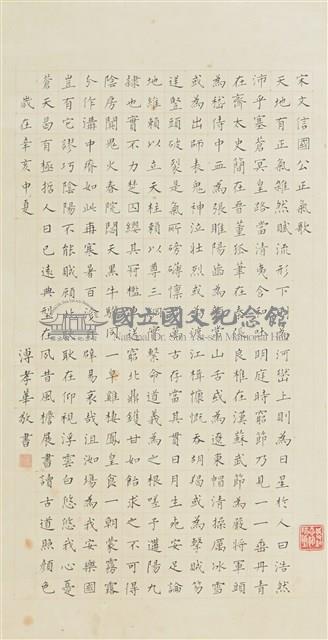 宋文信國公正氣歌
天地有正氣雜然賦流形下則為河嶽上則為日星於人曰浩然
沛乎塞蒼冥皇路當清夷含和吐明庭時窮節乃見一一垂丹青
在齊太史簡在晉董狐筆在秦張良椎在漢蘇武節為嚴將軍頭
為嵇侍中血為張睢陽齒為顏常山舌或為遼東帽清操厲冰雪
或為出師表鬼神泣壯烈或為渡江楫慷慨吞胡羯或為擊賊笏
逆豎頭破裂是氣所磅礴凜烈萬古存當其貫日月生死安足論
地維賴以立天柱賴以尊三綱實繫命道義為之根嗟予遘陽九
隸也實不力楚囚纓其冠傳車送窮北鼎鑊甘如飴求之不可得
陰房闃鬼火春院閟天黑牛驥同一皁雞棲鳳皇食一朝蒙霧露
分作溝中瘠如此再寒暑百沴自辟易哀哉沮洳場為我安樂國
豈有它謬巧陰陽不能賊顧此耿耿在仰視浮雲白悠悠我心憂
蒼天曷有極哲人日已遠典型在夙昔風檐展書讀古道照顏色
歲在辛亥中夏 溥孝華敬書
國立國父紀念館
National Dr. Sun Yat-sen Memorial Hall